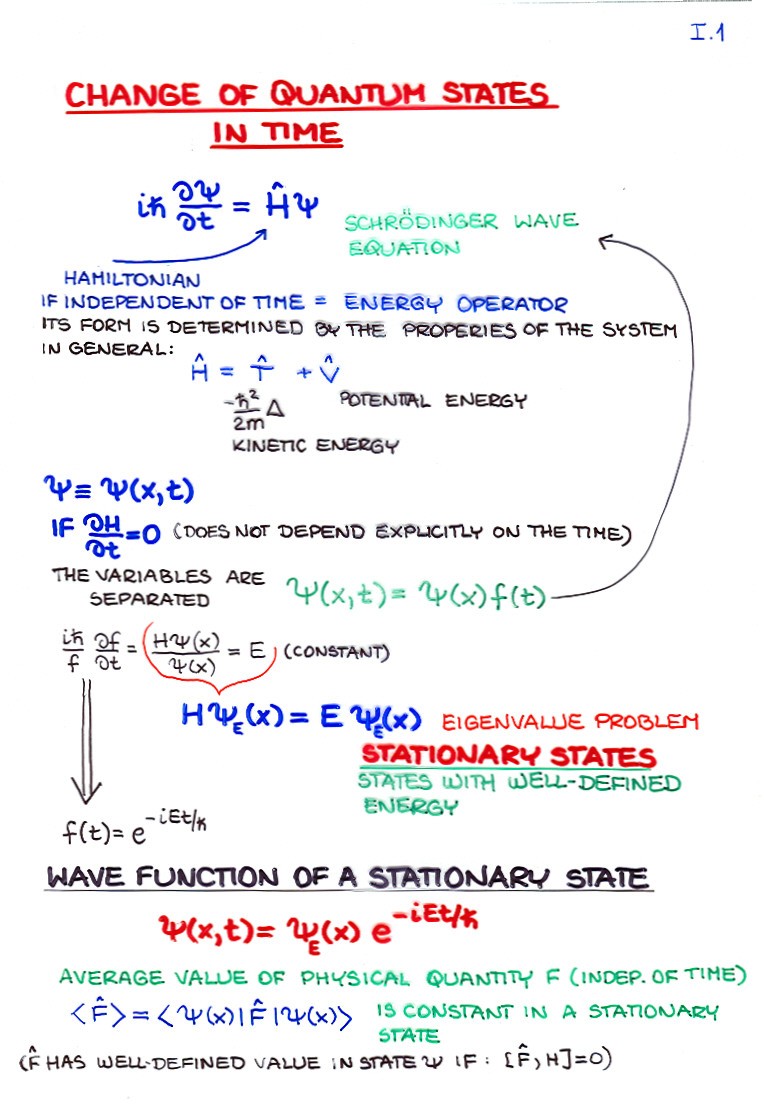 I.1
CHANGE OF QUANTUM STATES
IN TIME
iħ ∂Ψ/∂t = ĤΨ
SCHRÖDINGER WAVE
EQUATION
HAMILTONIAN
IF INDEPENDENT OF TIME = ENERGY OPERATOR
ITS FORM IS DETERMINED BY THE PROPERIES OF THE SYSTEM
IN GENERAL:
Ĥ = T̂ + V̂
-ħ²/2m Δ POTENTIAL ENERGY
KINETIC ENERGY
Ψ ≡ Ψ(x,t)
IF ∂H/∂t = 0 (DOES NOT DEPEND EXPLICITLY ON THE TIME)
THE VARIABLES ARE
SEPARATED
Ψ(x,t) = Ψ(x) f(t)
iħ/f ∂f/∂t = HΨ(x)/Ψ(x) = E (CONSTANT)
HΨ_E(x) = E Ψ_E(x) EIGENVALUE PROBLEM
STATIONARY STATES
STATES WITH WELL-DEFINED
ENERGY
f(t) = e^{-iEt/ħ}
WAVE FUNCTION OF A STATIONARY STATE
Ψ(x,t) = Ψ_E(x) e^{-iEt/ħ}
AVERAGE VALUE OF PHYSICAL QUANTITY F (INDEP. OF TIME)
<F̂> = <Ψ(x)|F̂|Ψ(x)> IS CONSTANT IN A STATIONARY
STATE
(F̂ HAS WELL-DEFINED VALUE IN STATE Ψ IF : [F̂,H]=0)